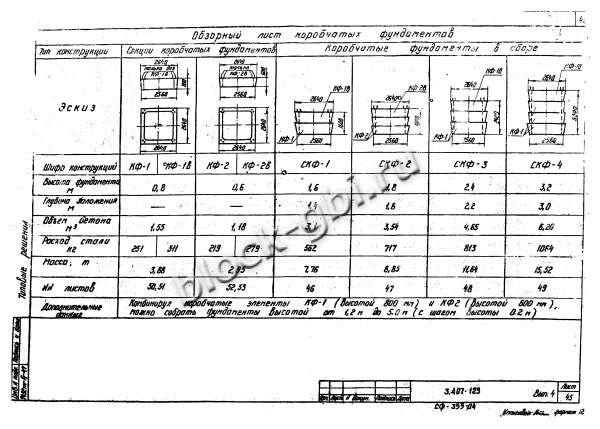 4.
Обзорный лист коробчатых фундаментов
Тип конструкции Секции коробчатых фундаментов Коробчатые фундаменты в сборе
Эскиз
2640
только для
КФ-1В
800
2560
2640
2640
2640
только
КФ-2В
600
2560
2640
2640
КФ-1В
2640
КФ-1
2560
КФ-2В
КФ-2
2560
КФ-1В
2640
КФ-1
2560
2640
КФ-1
2560
Шифр конструкций КФ-1 КФ-1В КФ-2 КФ-2В СКФ-1 СКФ-2 СКФ-3 СКФ-4
Высота фундамента м 0,8 0,6 1,6 1,8 2,4 3,2
Глубина заложения м — — — — 1,4 1,6 2,2 3,0
Объем бетона м³ 1,55 1,18 3,1 3,54 4,65 6,20
Расход стали кг 251 311 219 279 562 717 813 1064
Масса, т 3,88 2,95 7,76 8,85 11,64 15,52
NN листов 50,51 52,53 46 47 48 49
Дополнительные данные Комбинируя коробчатые элементы КФ-1 (высотой 800 мм) и КФ2 (высотой 600 мм),
можно собрать фундаменты высотой от 1,2 м до 5.0 м (с шагом высоты 0.2 м)
Типовые решения
block-gbi.ru
3.407-123 Вып. 4 Лист
45
Изм. Лист N докум. Подпись Дата
СФ-355-04
формат 12